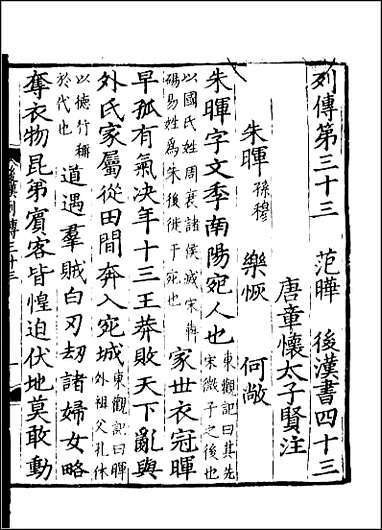 列傳第三十三 范曄 後漢書四十三
唐章懷太子賢注
朱暉 孫穆 樂恢 何敞
朱暉字文季南陽宛人也 東觀記曰其先宋微子之後也
以國氏姓周衰諸侯滅宋犇碭易姓爲朱後徙于宛也 家世衣冠暉
早孤有氣決年十三王莽敗天下亂與
外氏家屬從田間奔入宛城 東觀記曰暉外祖父孔休
以德行稱於代也 道遇羣賊白刃劫諸婦女略
奪衣物昆弟賓客皆惶迫伏地莫敢動
後漢列傳三十三